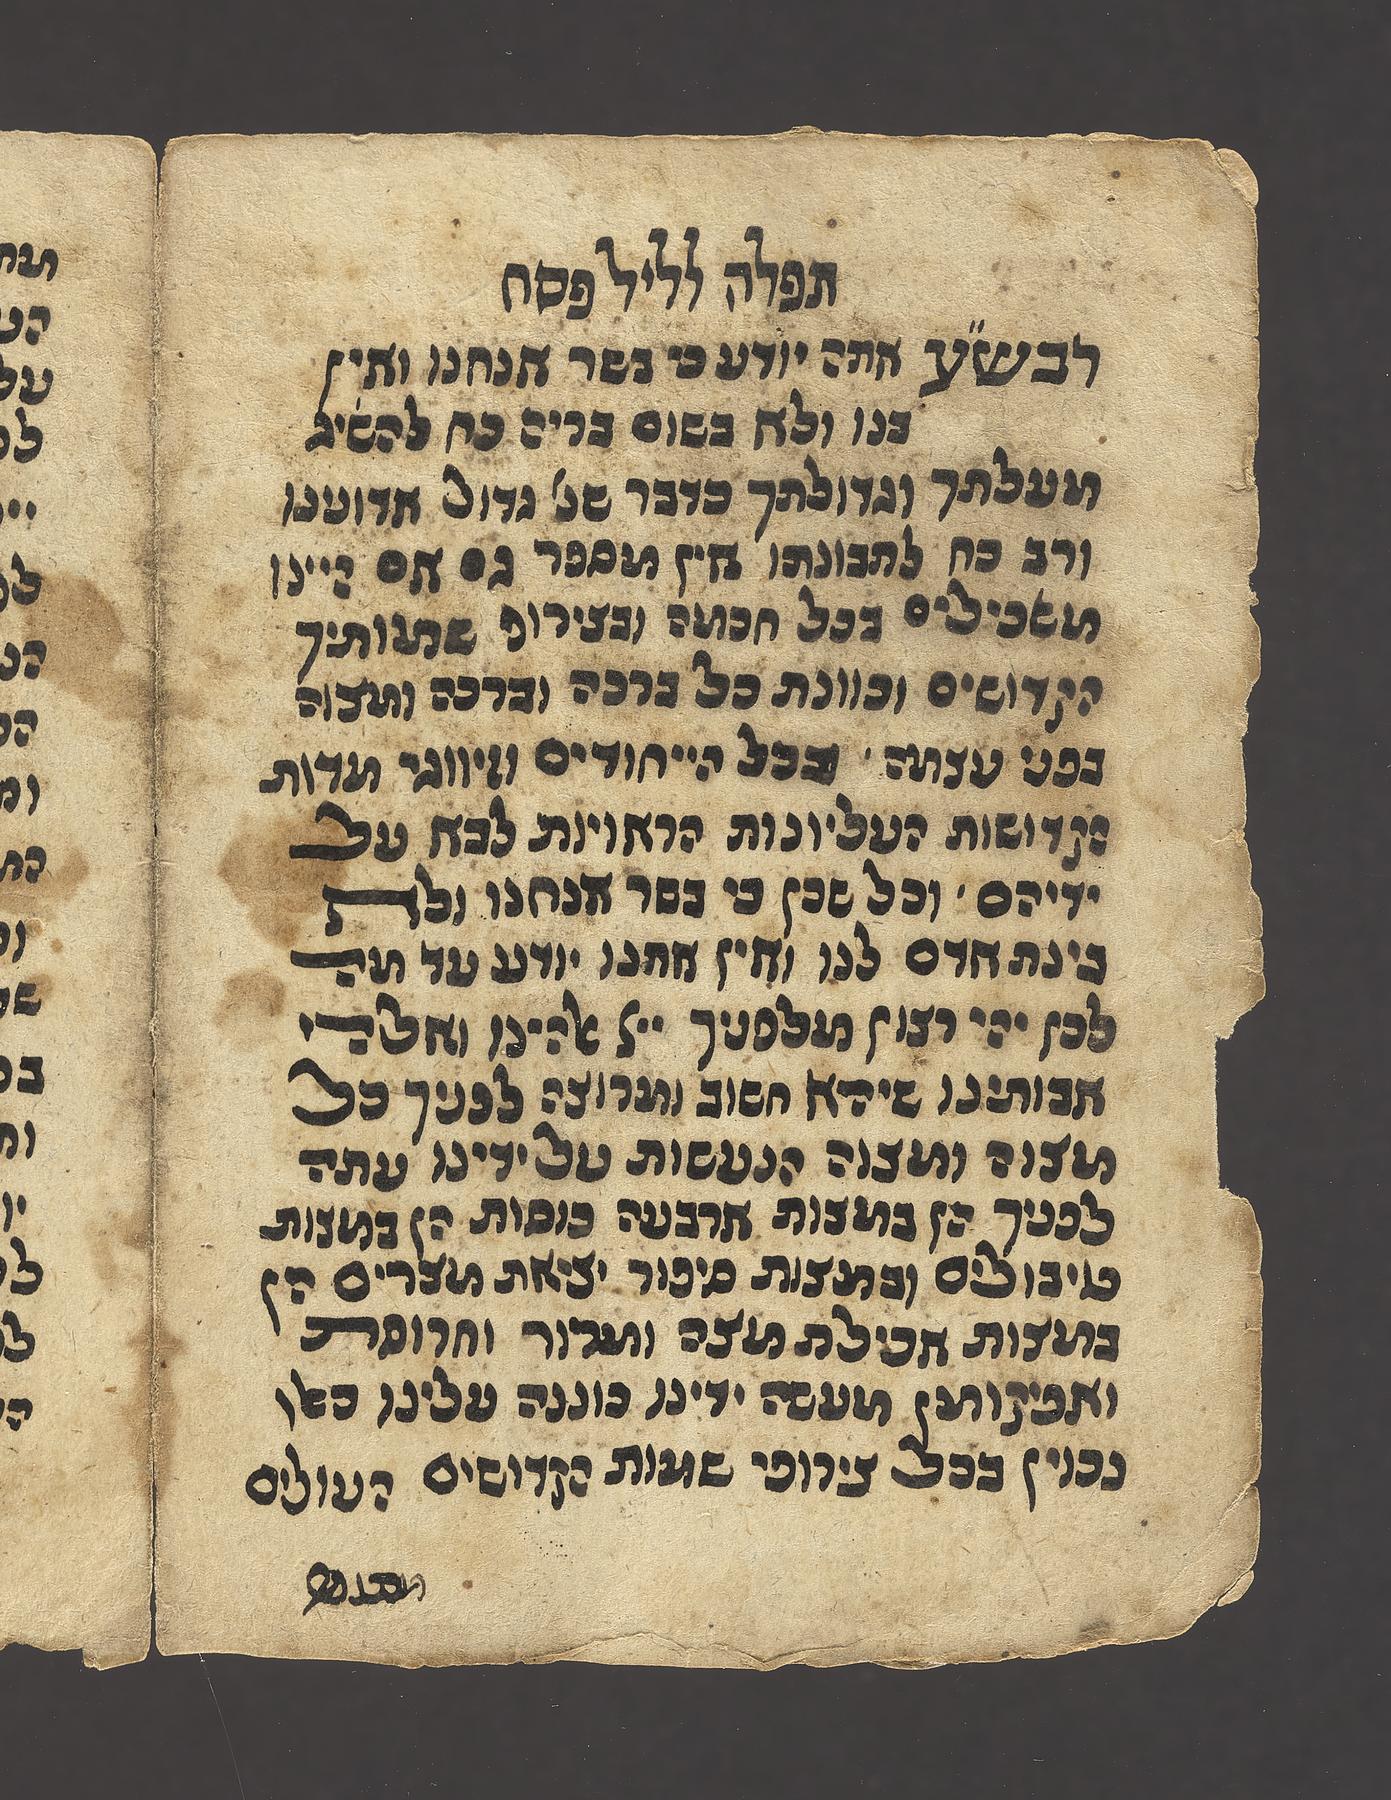 תפלה לליל פסח
רבש״ע אתה יודע כי בשר אנחנו ואין
בנו ולא בשום בריה כח להשיג
מעלתך וגדולתך כדבר שנ׳ גדול אדונינו
ורב כח לתבונתו אין מספר גם אם היינו
משכילים בכל חכמה ובצירוף שמותיך
הקדושים וכוונת כל ברכה וברכה ומצוה
בפני עצמה ׳ ובכל הייחודים וזיווגי מדות
הקדושות העליונות הראוינת לבא על
ידיהם ׳ וכל שכן כי בשר אנחנו ולא
בינת אדם לנו ואין אתנו יודע עד מה
לכן יהי רצון מלפניך ייא אהינו ואלהי
אבותינו שיהא חשוב ומרוצה לפניך כל
מצוה ומצוה הנעשות על ידינו עתה
לפניך הן במצות ארבעה כוסות הן במצות
טיבולים ובמצות סיפור יציאת מצרים הן
במצות אכילת מצה ומרור וחרוסת
ואפיקומן מעשה ידינו כוננה עלינו כאלו
נכוין בכל צירופי שמות הקדושים העולים
תבת
הע
על